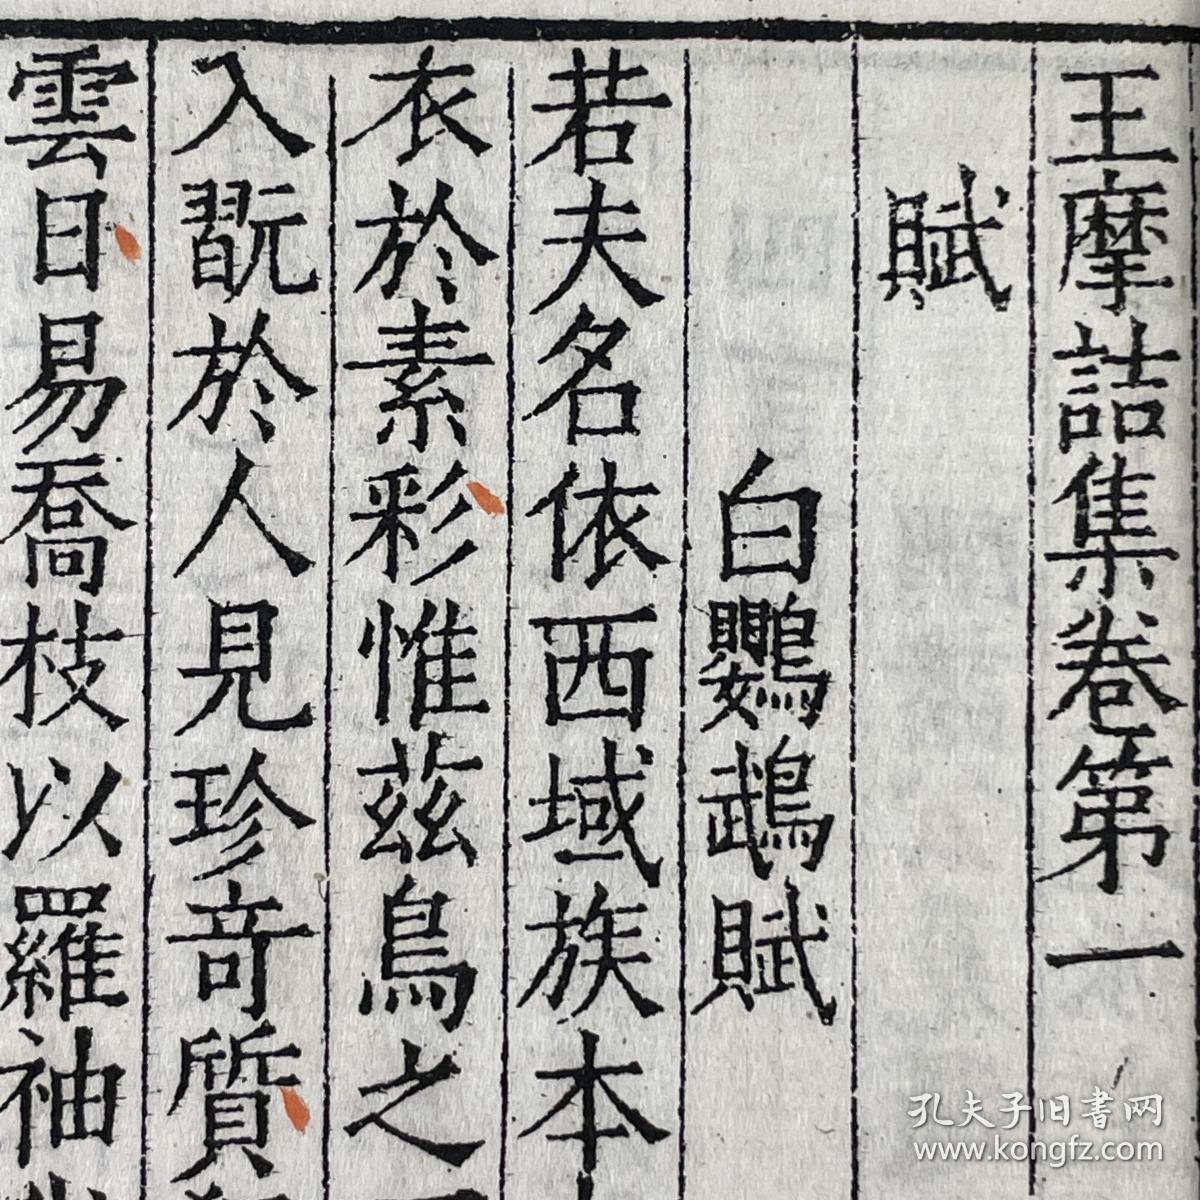 王摩詰集卷第一
賦
白鸚鵡賦
若夫名依西域族本
衣於素彩惟茲鳥之
入翫於人見珍奇質
雲日易喬枝以羅袖
孔夫子旧書网
www.kongfz.com